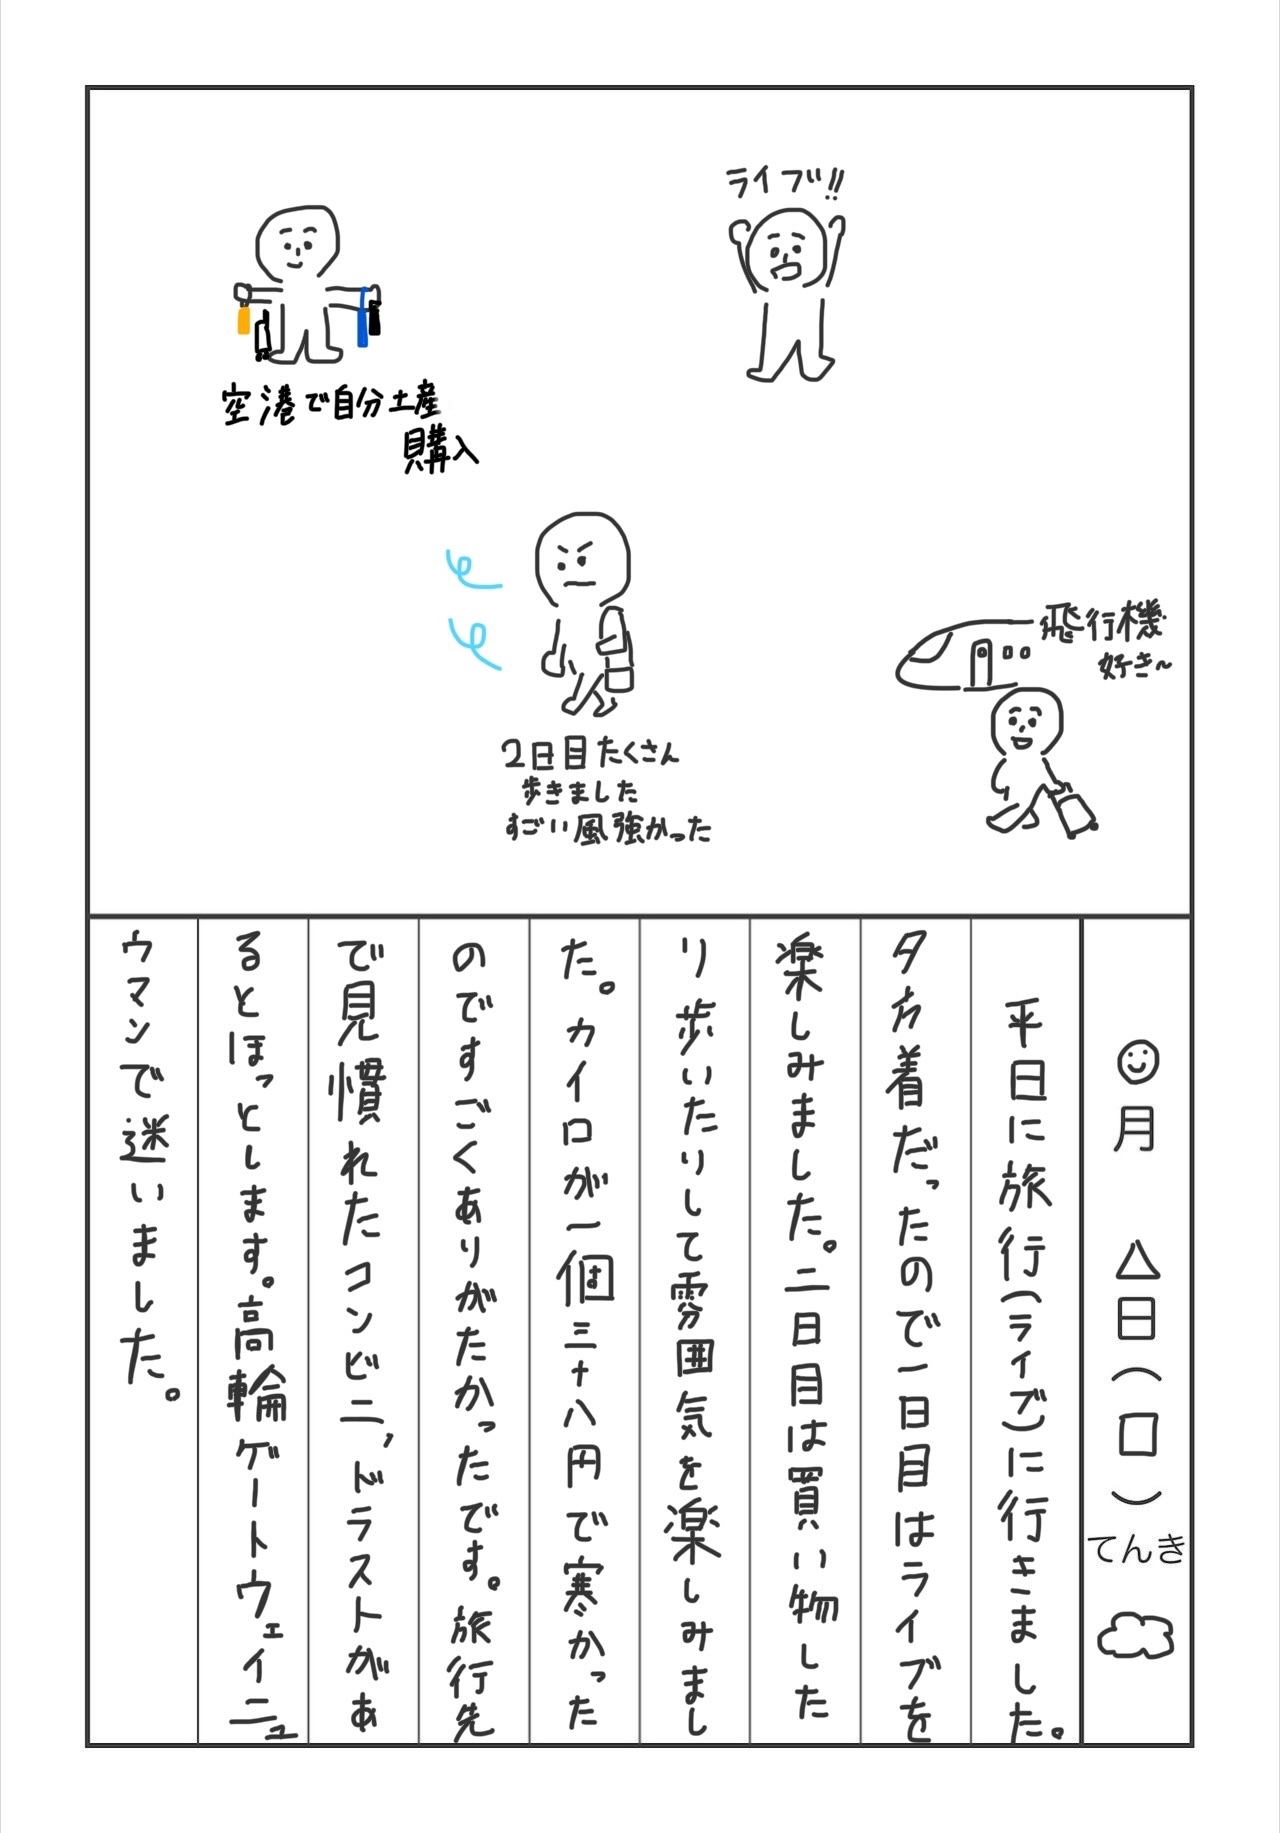 ライブ!!
空港で自分土産
購入
飛行機
好き〜
2日目たくさん
歩きました
すごい風強かった
月 △日(口)てんき
平日に旅行(ライブ)に行きました。
夕方着だったので一日目はライブを
楽しみました。二日目は買い物した
り歩いたりして雰囲気を楽しみまし
た。カイロが一個三十八円で寒かった
のですごくありがたかったです。旅行先
で見慣れたコンビニ,ドラストがあ
るとほっとします。高輪ゲートウェイニュ
ウマンで迷いました。